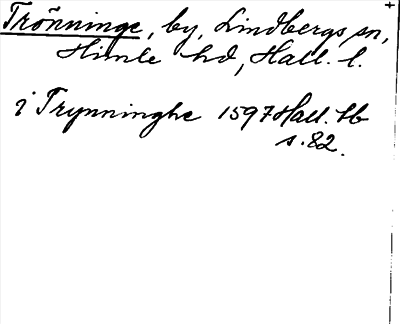 Trönninge, by, Lindbergs sn,
Himle hd, Hall. l.
i Trynninghe 1597 Hall. tb
s. 82.